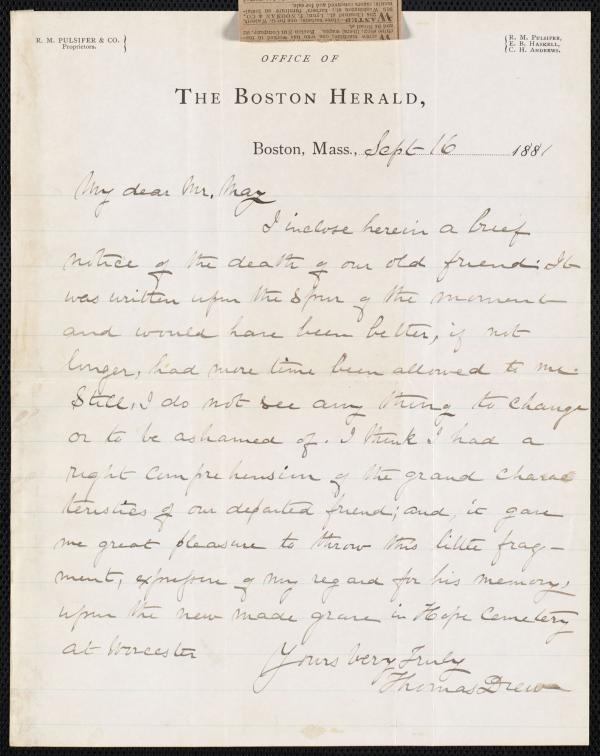 R. M. PULSIFER & CO.
Proprietors.
R. M. PULSIFER,
E. B. HASKELL,
C. H. ANDREWS.
OFFICE OF
THE BOSTON HERALD,
Boston, Mass., Sept 16 1881
My dear Mr. May
I inclose herein a brief
notice of the death of our old friend. It
was written upon the spur of the moment
and would have been better, if not
longer, had more time been allowed to me.
Still, I do not see any thing to change
or to be ashamed of. I think I had a
right comprehension of the grand charac
teristics of our departed friend; and it gave
me great pleasure to throw this little frag-
ment, expressive of my regard for his memory,
upon the new made grave in Hope Cemetery
at Worcester
Yours Very Truly
Thomas Drew